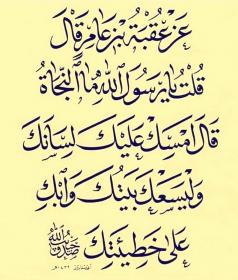 عَنْ عُقْبَةَ بْنِ عَامِرٍ قَالَ
قُلْتُ يَا رَسُولَ اللهِ مَا النَّجَاةُ
قَالَ امْسِكْ عَلَيْكَ لِسَانَكَ
وَلْيَسَعْكَ بَيْتُكَ وَابْكِ
عَلَى خَطِيئَتِكَ